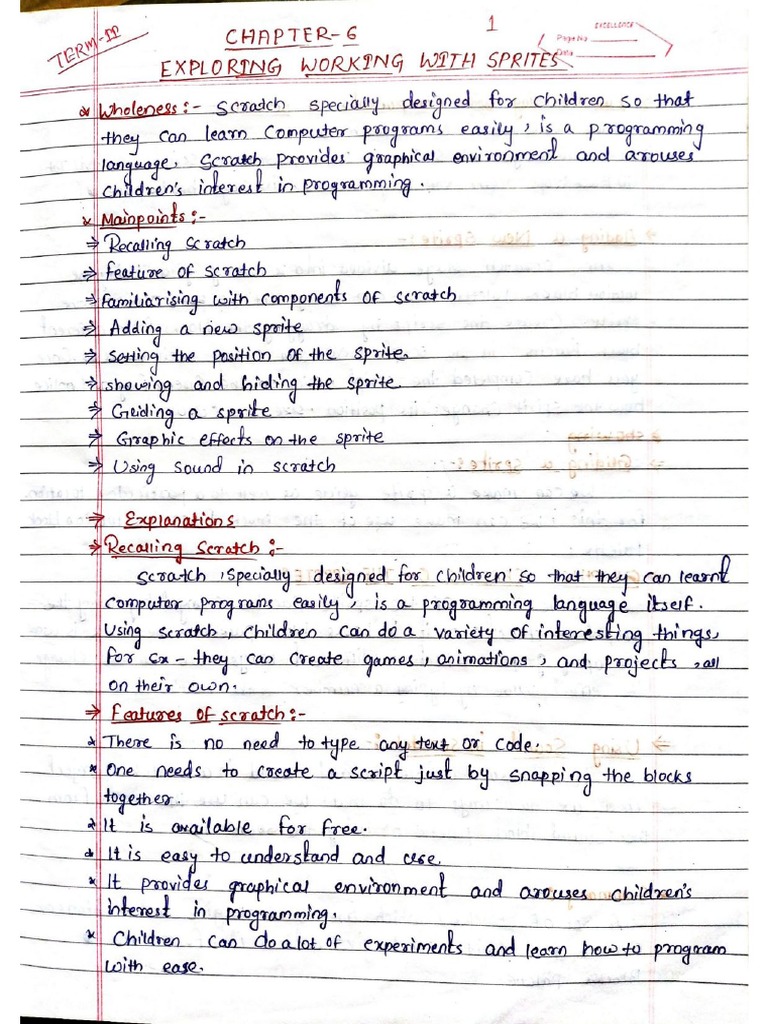 TERM-II
CHAPTER-6
1
EXCELLENCE
Page No
Date
EXPLORING WORKING WITH SPRITES
* Wholeness:- Scratch specially designed for children so that
they can learn Computer programs easily, is a programming
language. Scratch provides graphical environment and arouses
children's interest in programming.
* Mainpoints:-
⇒ Recalling Scratch
⇒ feature of scratch
⇒ familiarising with components of scratch
⇒ Adding a new sprite
⇒ Setting the position of the sprite.
⇒ showing and hiding the sprite.
⇒ Guiding a sprite
⇒ Graphic effects on the sprite
⇒ Using sound in scratch
⇒ Explanations
⇒ Recalling Scratch:-
Scratch, specially designed for children so that they can learnt
computer programs easily, is a programming language itself.
Using scratch, children can do a variety of interesting things,
for ex- they can create games, animations, and projects, all
on their own.
⇒ Features of scratch:-
* There is no need to type any text or code.
* One needs to create a script just by snapping the blocks
together.
* It is available for free.
* It is easy to understand and use.
* It provides graphical environment and arouses children's
interest in programming.
* Children can do a lot of experiments and learn how to program
with ease.